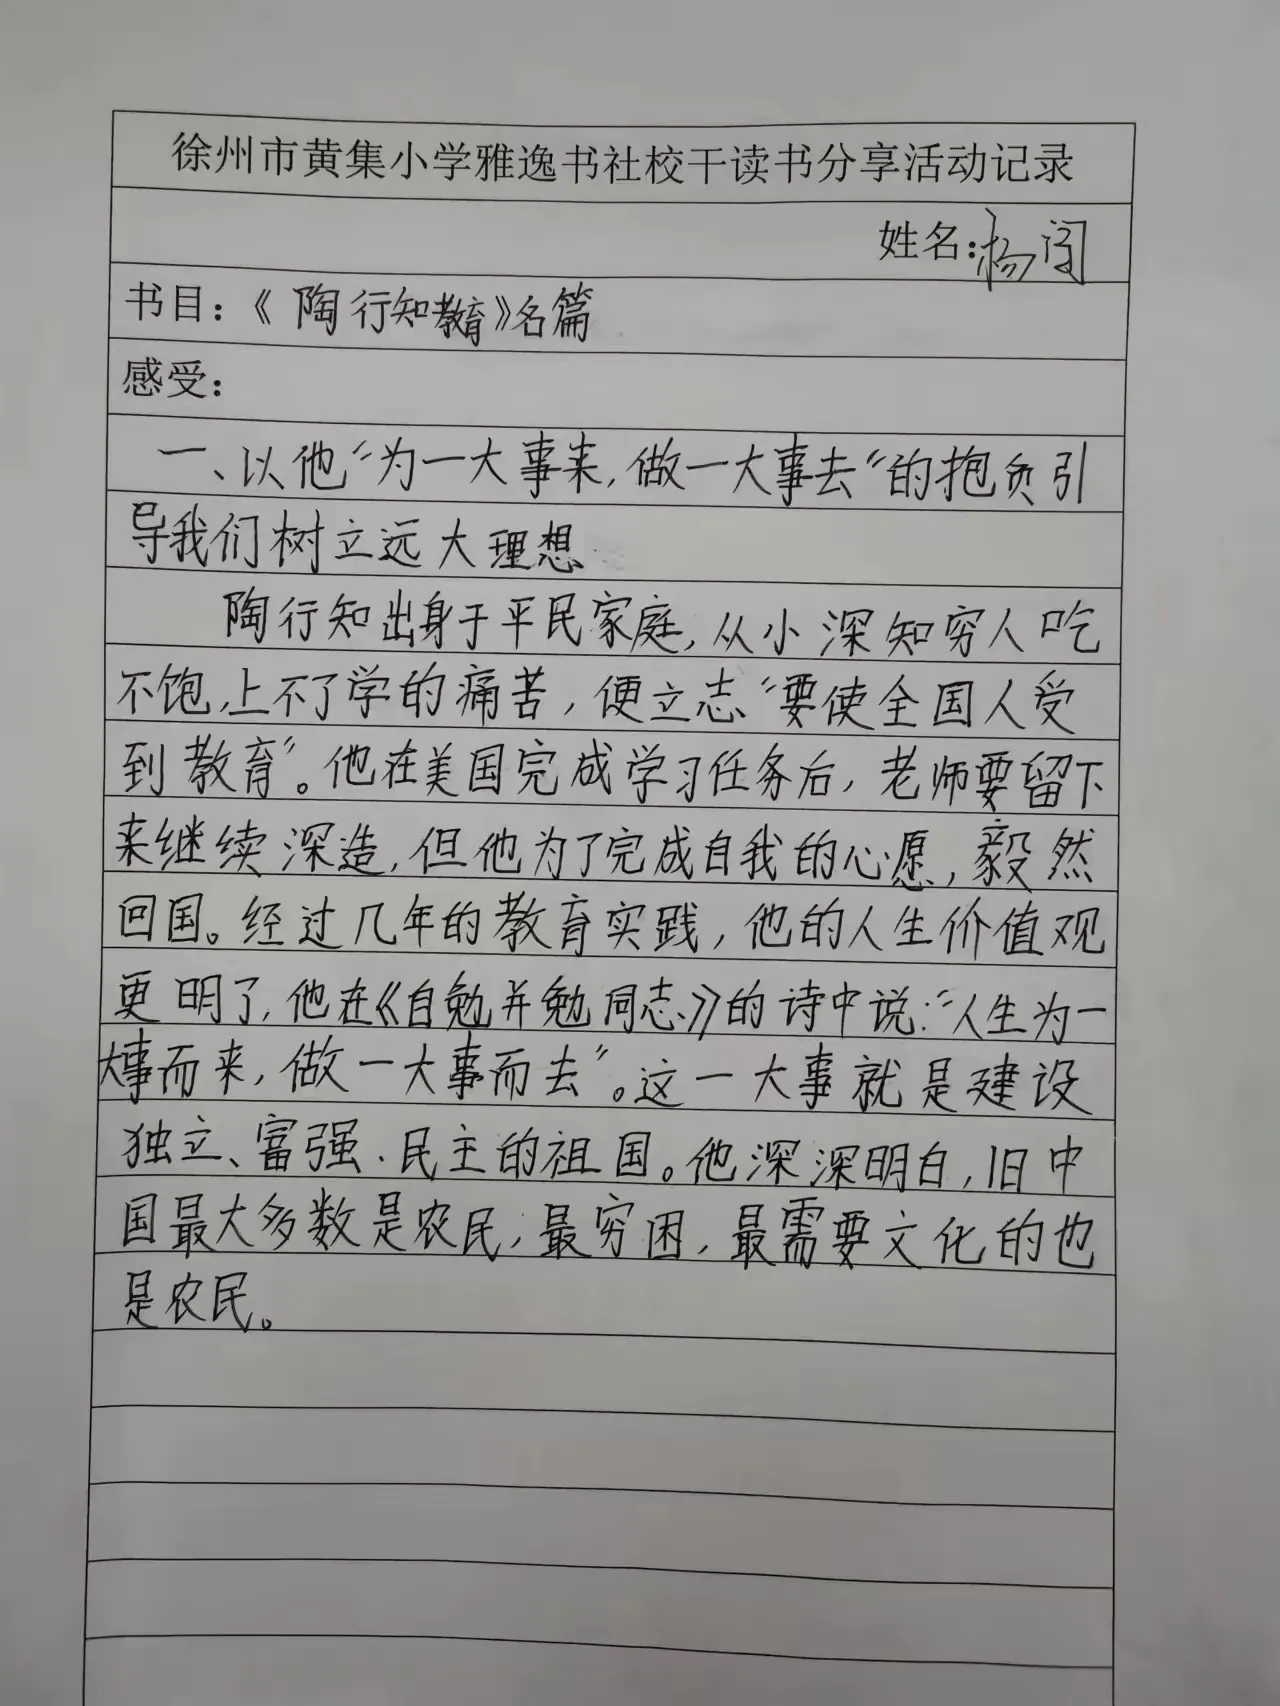 徐州市黄集小学雅逸书社校干读书分享活动记录
姓名:杨
书目:《陶行知教育》名篇
感受:
一、以他“为一大事来,做一大事去”的抱负引
导我们树立远大理想
陶行知出身于平民家庭,从小深知穷人吃
不饱,上不了学的痛苦,便立志“要使全国人受
到教育”。他在美国完成学习任务后,老师要留下
来继续深造,但他为了完成自我的心愿,毅然
回国。经过几年的教育实践,他的人生价值观
更明了,他在《自勉并勉同志》的诗中说:“人生为一
大事而来,做一大事而去”。这一大事就是建设
独立、富强、民主的祖国。他深深明白,旧中
国最大多数是农民,最穷困,最需要文化的也
是农民。